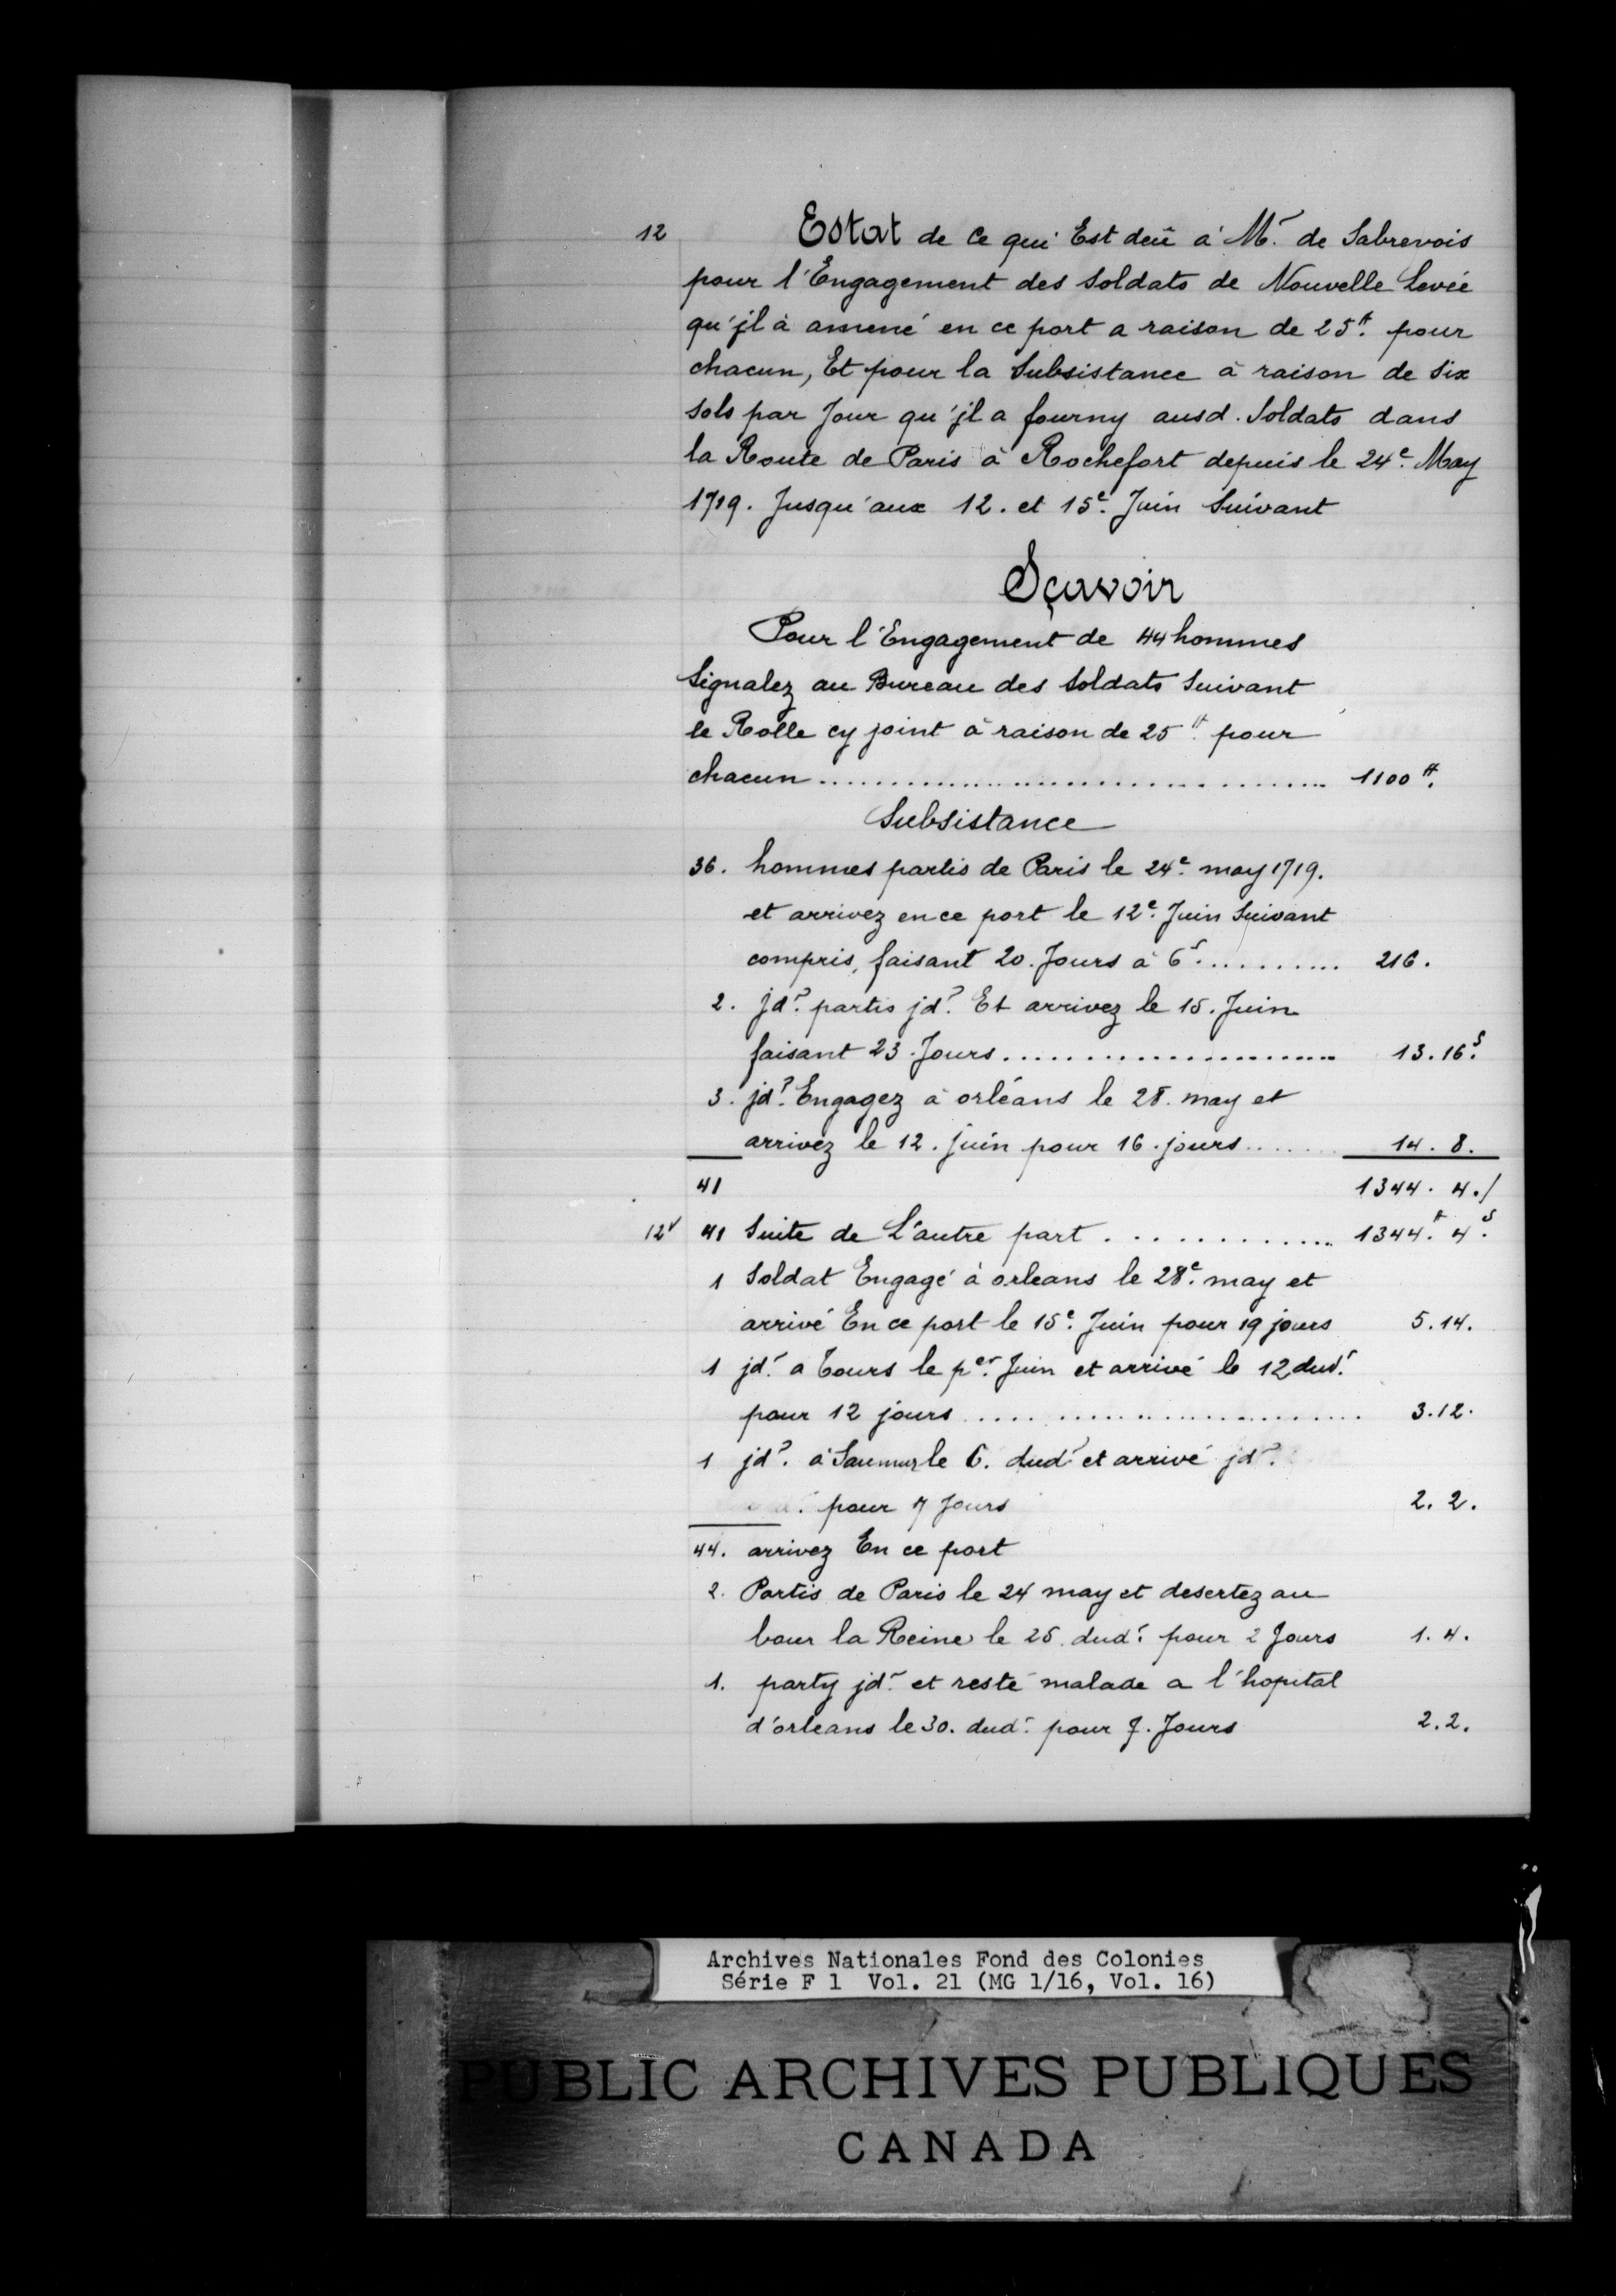 12 Estat de ce qui Est deü á Mr. de Sabrevois
pour l'Engagement des soldats de Nouvelle Levée
qu'jl à amené en ce port a raison de 25#. pour
chacun, Et pour la Subsistance à raison de Six
sols par Jour qu'jl a fourny ausd. Soldats dans
la Route de Paris à Rochefort depuis le 24e. May
1719. Jusqu'aux 12. et 15e. Juin Suivant
Sçavoir
Pour l'Engagement de 44 hommes
Signalez au Bureau des Soldats Suivant
le Rolle cy joint à raison de 25#. pour
chacun .................................... 1100#.
Subsistance
36. hommes partis de Paris le 24e. may 1719.
et arrivez en ce port le 12e. Juin Suivant
compris, faisant 20. Jours à 6s. ......... 216.
2. jd?. partis jd?. Et arrivez le 15. Juin
faisant 23 Jours ...................... 13.16s.
3. jd?. Engagez à orléans le 28. may et
arrivez le 12. juin pour 16. jours ...... 14. 8.
41 1344. 4./
12v 41 Suite de L'autre part ............. 1344#. 4s.
1 Soldat Engagé à orleans le 28e. may et
arrivé En ce port le 15e. Juin pour 19 jours 5.14.
1 jdr. a Tours le per. Juin et arrivé le 12 dudr.
pour 12 jours ......................... 3.12.
1 jd?. à Saumur le 6. dudr et arrivé jdr.
pour 7 Jours 2. 2.
44. arrivez En ce port
2. Partis de Paris le 24 may et desertez au
bour la Reine le 25. dudr. pour 2 Jours 1. 4.
1. party jdr. et resté malade a l'hopital
d'orleans le 30. dudr. pour 7. Jours 2.2.
Archives Nationales Fond des Colonies
Série F 1 Vol. 21 (MG 1/16, Vol. 16)
PUBLIC ARCHIVES PUBLIQUES
CANADA